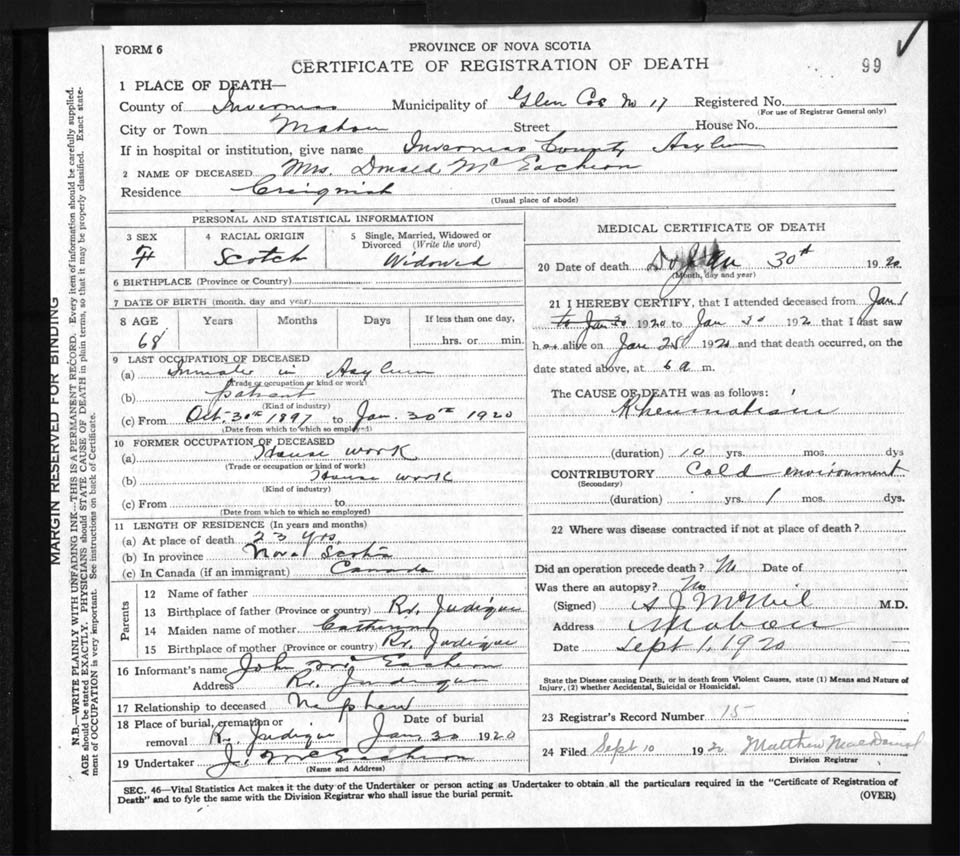 FORM 6
PROVINCE OF NOVA SCOTIA
CERTIFICATE OF REGISTRATION OF DEATH
99
1 PLACE OF DEATH—
County of Inverness Municipality of Glen Coe No 17 Registered No.
(For use of Registrar General only)
City or Town Mabou Street House No.
If in hospital or institution, give name Inverness County Asylum
2 NAME OF DECEASED Mrs. Donald McEachern
Residence Creignish
(Usual place of abode)
PERSONAL AND STATISTICAL INFORMATION
3 SEX 4 RACIAL ORIGIN 5 Single, Married, Widowed or Divorced (Write the word)
F Scotch Widowed
6 BIRTHPLACE (Province or Country)
7 DATE OF BIRTH (month, day and year)
8 AGE Years Months Days If less than one day,
68 hrs. or min.
9 LAST OCCUPATION OF DECEASED
(a) Inmate in Asylum
(Trade or occupation or kind of work)
(b) patient
(Kind of industry)
(c) From Oct. 30th 1897 to Jan. 30th 1920
(Date from which to which so employed)
10 FORMER OCCUPATION OF DECEASED
(a) House work
(Trade or occupation or kind of work)
(b) House work
(Kind of industry)
(c) From to
(Date from which to which so employed)
11 LENGTH OF RESIDENCE (In years and months)
(a) At place of death 23 yrs.
(b) In province Nova Scotia
(c) In Canada (if an immigrant) Canada
Parents
12 Name of father
13 Birthplace of father (Province or country) Rr. Judique
14 Maiden name of mother Catherine
15 Birthplace of mother (Province or country) Rr. Judique
16 Informant's name John McEachern
Address Rr. Judique
17 Relationship to deceased Nephew
18 Place of burial, cremation or removal Rr. Judique Date of burial Jan. 30 1920
19 Undertaker J. McEachern
(Name and Address)
MEDICAL CERTIFICATE OF DEATH
20 Date of death Jan 30th 1920
(Month, day and year)
21 I HEREBY CERTIFY, that I attended deceased from Jan 1
to Jan 30 1920 to Jan 30 1920 that I last saw
her alive on Jan 25 1920 and that death occurred, on the
date stated above, at 6 a m.
The CAUSE OF DEATH was as follows:
Rheumatism
(duration) 10 yrs. mos. dys
CONTRIBUTORY Cold environment
(Secondary)
(duration) yrs. 1 mos. dys.
22 Where was disease contracted if not at place of death?
Did an operation precede death? No Date of
Was there an autopsy? No
(Signed) A J McNeil M.D.
Address Mabou
Date Sept 1, 1920
State the Disease causing Death, or in death from Violent Causes, state (1) Means and Nature of
Injury, (2) whether Accidental, Suicidal or Homicidal.
23 Registrar's Record Number 15
24 Filed Sept 10 1920 Matthew MacDonald
Division Registrar
SEC. 46—Vital Statistics Act makes it the duty of the Undertaker or person acting as Undertaker to obtain all the particulars required in the "Certificate of Registration of
Death" and to fyle the same with the Division Registrar who shall issue the burial permit.
(OVER)
MARGIN RESERVED FOR BINDING
N.B.—WRITE PLAINLY WITH UNFADING INK—THIS IS A PERMANENT RECORD. Every item of information should be carefully supplied.
AGE should be stated EXACTLY. PHYSICIANS should STATE CAUSE OF DEATH in plain terms, so that it may be properly classified. Exact state-
ment of OCCUPATION is very important. See instructions on back of Certificate.